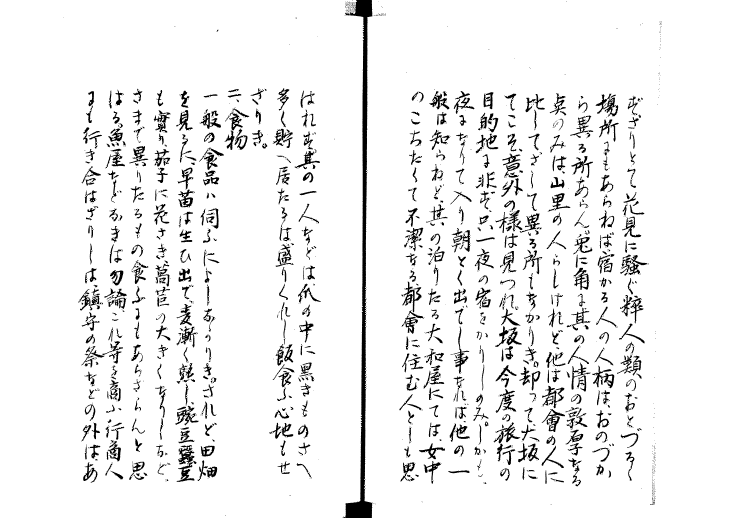 ずざりとて花見に騒ぐ粋人の類のおとづるゝ
場所にもあらねば、宿かる人の人柄は、おのづか
ら異る所あらん。兎に角に其の人情の敦厚なる
点のみは、山里の人らしけれど、他は都會の人に
比してさして異る所もなかりき。却って大坂に
てこそ、意外の様は見つれ。大坂は今度の旅行の
目的地に非ず、只一夜の宿をかりしのみ。しかも、
夜になりて入り朝とく出でし事なれば、他の一
般は知らねど、其の泊りたる大和屋にては、女中
のこちたくて不潔なる、都會に住む人としも思
はれず。其の一人などは、爪の中に黒きものさへ
多く貯へ居たるは、盛りくれし飯食ふ心地もせ
ざりき。
二、食物
一般の食品ハ伺ふによしなかりき。されど、田畑
を見るに、早苗は生ひ出で、麦漸く熟し、豌豆蠶豆
も實り、茄子に花さき、萵苣の大きくなりしなど、
さまで異りたるもの食ふにもあらざらんと思
はる。魚屋などなきは勿論、これ等を商ふ行商人
にも行き合はざりしは、鎮守の祭などの外は、あ